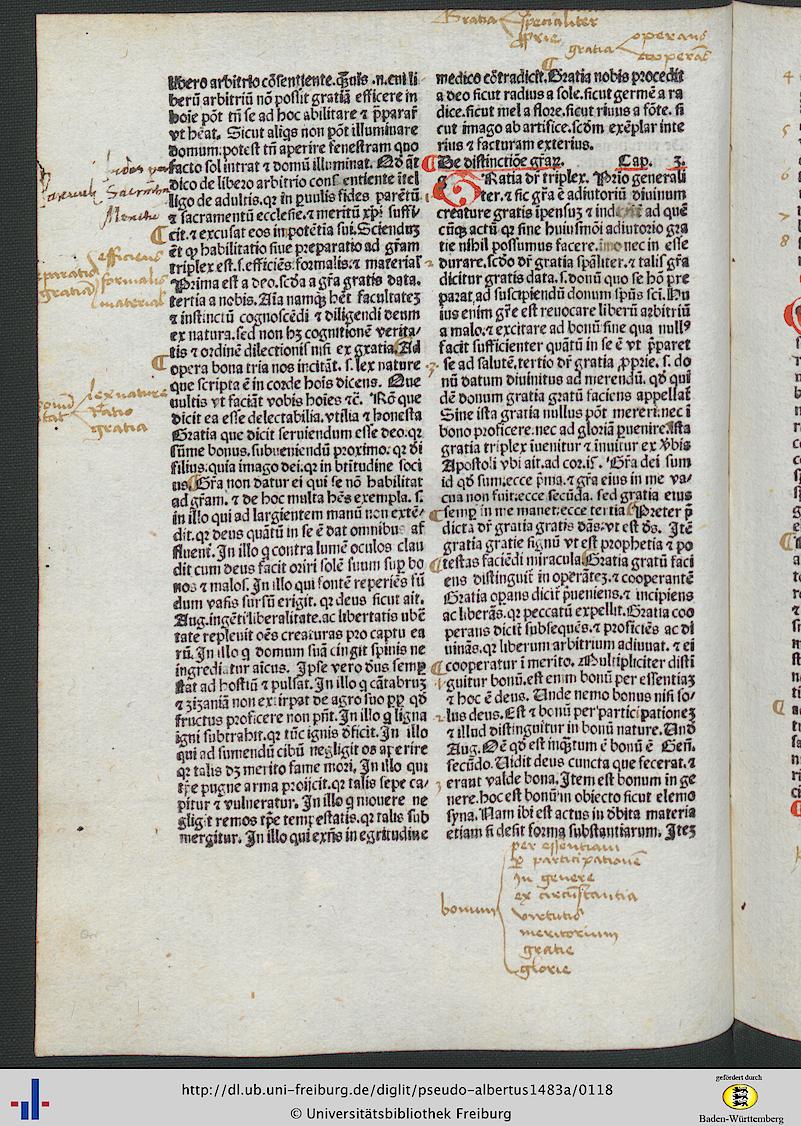 Gratia specialiter
pprie
gratia operans
cooperās
libero arbitrio cōsentiente. Q̄uis .n. eni li
berū arbitriū nō possit gratiā efficere in
hoīe pōt tn̄ se ad hoc abilitare ⁊ p̄parar̄
vt heāt. Sicut aliqs non pōt illuminare
domum: potest tn̄ aperire fenestram quo
facto sol intrat ⁊ domū illuminat. Qd aūt
dico de libero arbitrio consentiente ītel
ligo de adultis. qr in puulis fides parētū
⁊ sacramentū ecclesie. ⁊ meritū xp̄i suffi
cit. ⁊ excusat eos in potētia sui. Sciendū
ēt ꝙ habilitatio siue preparatio ad gr̄am
triplex est. s. efficiēs: formalis: ⁊ material̄
Prima est a deo. scd̄a a gr̄a gratis data.
tertia a nobis. Aīa namqꝫ hēt facultateꝫ
⁊ instinctū cognoscēdi ⁊ diligendi deum
ex natura. sed non hꝫ cognitionē verita⸗
tis ⁊ ordinē dilectionis nisi ex gratia. Ad
opera bona tria nos incitāt. s. lex nature
que scripta ē in corde hoīs dicens. Que
vultis vt faciāt vobis hoīes ⁊c̄. Rō que
dicit ea esse delectabilia. vtilia ⁊ honesta
Gratia que dicit seruiendum esse deo. qr
sūme bonus. subueniendū proximo. qr di
filius. quia imago dei. qr in btītudine soci
us. Gr̄a non datur ei qui se nō habilitat
ad gr̄am. ⁊ de hoc multa hēs exempla. s.
in illo qui ad largientem manū non extē⸗
dit. qr deus quātū in se ē dat omnibus af
fluent̄. In illo q contra lumē oculos clau
dit cum deus facit oriri solē suum sup bo
nos ⁊ malos. In illo qui fontē reperiēs fū
dum vasis sursū erigit. qr deus sicut ait.
Aug. ingēti liberalitate. ac libertatis vbē
tate repleuit oēs creaturas pro captu ea
rū. In illo q domum suā cingit spinis ne
ingrediatur aīcus. Ipse vero dn̄s semp
stat ad hostiū ⁊ pulsat. In illo q cātabruꝫ
⁊ zizaniā non extirpat de agro suo ꝓp qd
fructus proficere non pn̄t. In illo q ligna
igni subtrahit. qr tūc ignis dficit. In illo
qui ad sumendū cibū negligit os aperire
qr talis dꝫ merito fame mori. In illo qui
tp̄e pugne arma proijcit. qr talis sepe ca⸗
pitur ⁊ vulneratur. In illo q mouere ne
gligit remos tp̄e tempestatis. qr talis sub
mergitur. In illo qui exn̄s in egritudine
medico cōtradicit. Gratia nobis procedit
a deo sicut radius a sole. sicut germē a ra
dice. sicut mel a flore. sicut riuus a fōte. si
cut imago ab artifice. scd̄m exēplar inte
rius ⁊ facturam exterius.
De distinctiōe gr̄aꝝ. Cap. 3.
GRatia dr̄ triplex. Prīo generali
ter. ⁊ sic gr̄a ē adiutoriū diuinum
creature gratis ipensuꝫ ad quē
cūqꝫ actū qr sine huiusmōi adiutorio gra
tie nihil possumus facere. nec in esse
durare. scd̄o dr̄ gratia spāliter. ⁊ talis gr̄a
dicitur gratis data. s. donū quo se hō pre
parat ad suscipiendū donum spūs sc̄i. Hu
ius enim gr̄e est reuocare liberū arbitriū
a malo. ⁊ excitare ad bonū sine qua nullꝰ
facit sufficienter quātū in se ē vt p̄paret
se ad salutē. tertio dr̄ gratia ꝓprie. s. do
nū datum diuinitus ad merendū. qd qui
dē donum gratia gratū faciens appellat̄
Sine ista gratia nullus pōt mereri: nec ī
bono proficere: nec ad gloriā puenire. Ista
gratia triplex īuenitur ⁊ īnuitur ex v̄bis
Apostoli vbi ait. ad cor. Gr̄a dei sum
id qd sum: ecce p̄ma. ⁊ gr̄a eius in me va⸗
cua non fuit: ecce secūda. sed gratia eius
semp in me manet: ecce tertia. Preter p̄
dicta dr̄ gratia gratis dās: vt est ds. Itē
gratia gratie signū vt est prophetia ⁊ po
testas faciēdi miracula. Gratia gratū faci
ens distinguit̄ in operāteꝫ. ⁊ cooperantē
Gratia opans dicit̄ p̄ueniens. ⁊ incipiens
ac liberās. qr peccatū expellit. Gratia coo
perans dicit̄ subsequēs. ⁊ proficiēs ac di
uinās. qr liberum arbitrium adiuuat. ⁊ ei
cooperatur ī merito. Multipliciter disti
guitur bonū. est enim bonū per essentiaꝫ
⁊ hoc ē deus. Unde nemo bonus nisi so⸗
lus deus. Est ⁊ bonū per participationeꝫ
⁊ illud distinguitur in bonū nature. Und̄
Aug. Oē qd est inquātum ē bonū ē Gen̄.
secūdo. Uidit deus cuncta que fecerat. ⁊
erant valde bona. Item est bonum in ge
nere. hoc est bonū in obiecto sicut elemo
syna. Nam ibi est actus in dbita materia
etiam si desit forma substantiarum. Iteꝫ
Sacrōm
efficiens
formalis
material
gratia
lex nature
Ratio
gratia
bonum
per essentiam
p participationē
In genere
ex circūstantia
virtutis
meritorium
gratie
glorie
http://dl.ub.uni-freiburg.de/diglit/pseudo-albertus1483a/0118
© Universitätsbibliothek Freiburg
gefördert durch
Baden-Württemberg